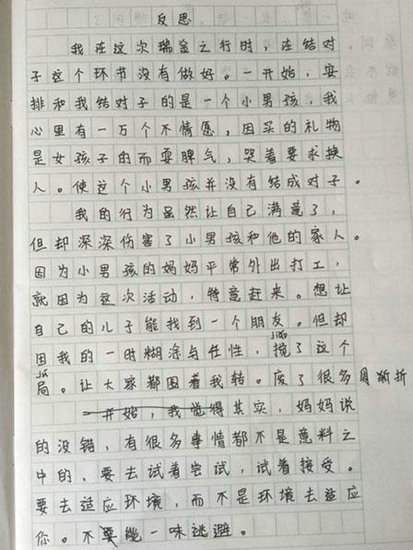 反思
我在这次瑞金之行时，在结对
子这个环节没有做好。一开始，安
排和我结对子的是一个小男孩，我
心里有一万个不情愿，因买的礼物
是女孩子的而耍脾气，哭着要求换
人。使这个小男孩并没有结成对子。
我的行为虽然让自己满意了，
但却深深伤害了小男孩和他的家人。
因为小男孩的妈妈平常外出打工，
就因为这次活动，特意赶来。想让
自己的儿子能找到一个朋友。但却
因我的一时糊涂与任性，搅了这个
局。让大家都围着我转。废了很多周折
一开始，我觉得其实，妈妈说
的没错，有很多事情都不是意料之
中的，要去试着尝试，试着接受。
要去适应环境，而不是环境去适应
你。不能一味逃避。